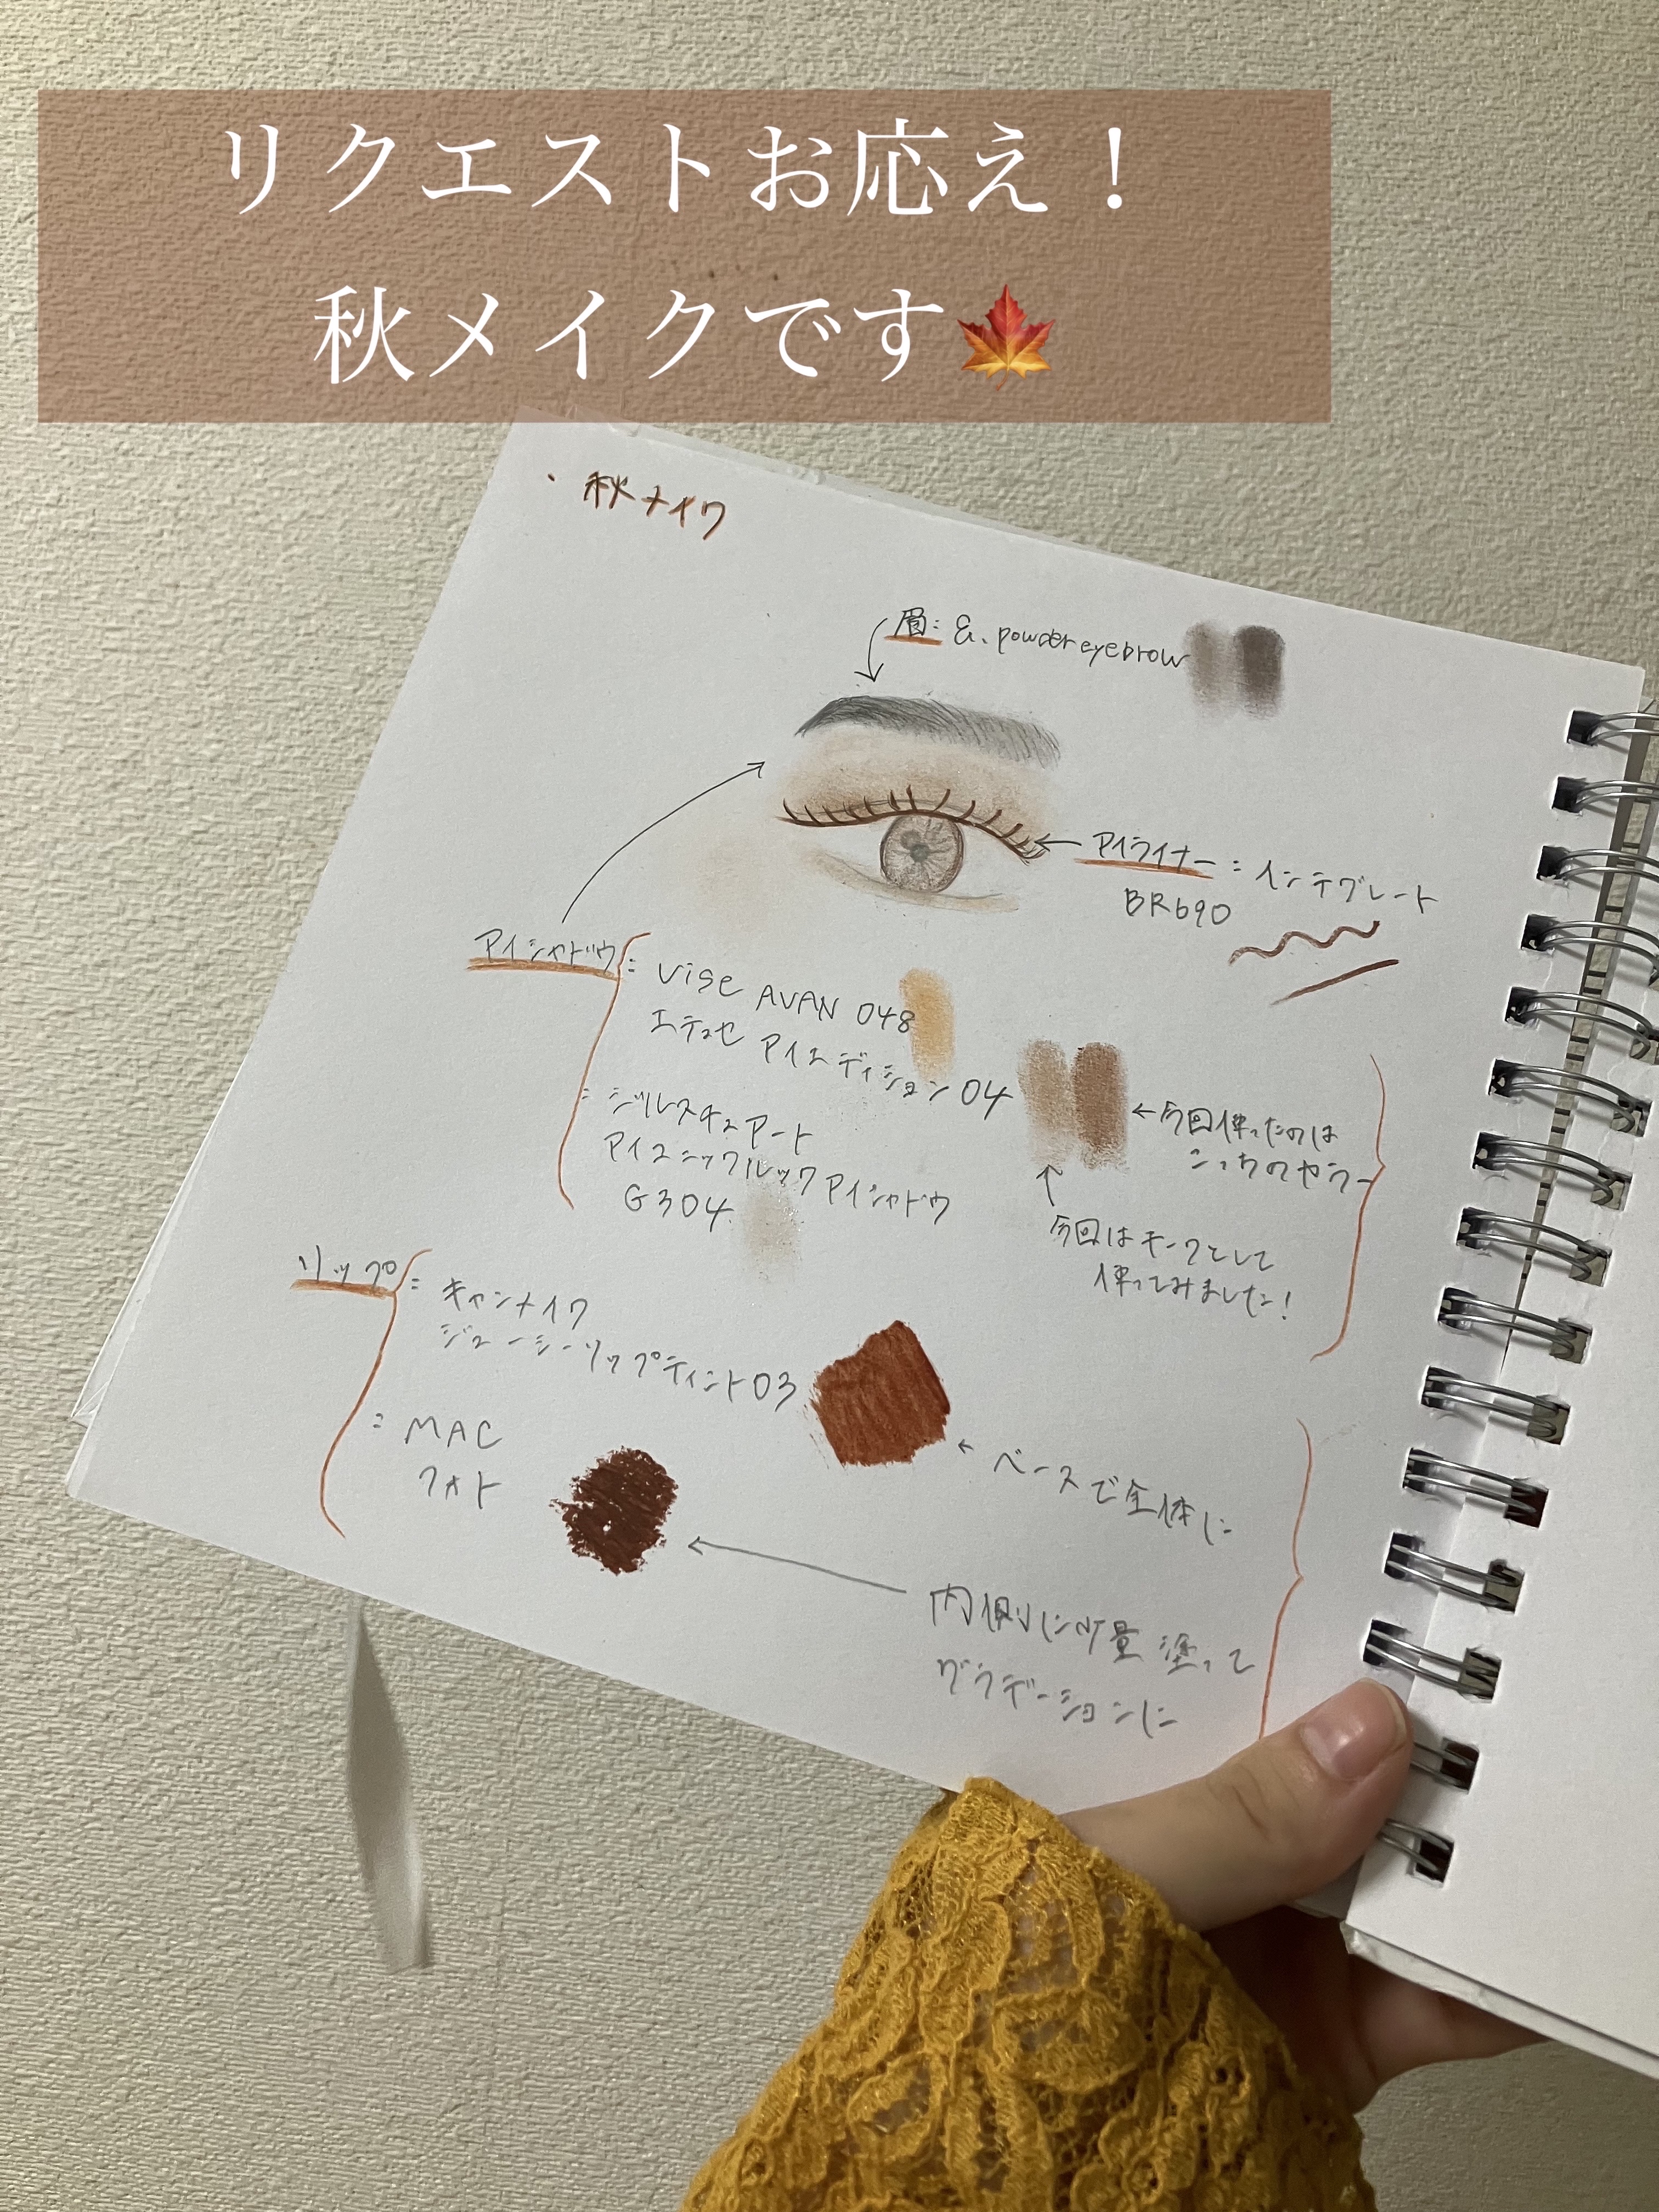 リクエストお応え！
秋メイクです🍁
・秋メイク
眉: &. powder eyebrow
アイライナー: インテグレート
BR690
アイシャドウ: vise AVAN 048
エテュセ アイエディション 04
←今回使ったのは
こっちのカラー
: ジルスチュアート
アイコニックルック アイシャドウ
G304
↑
今回はチークとして
使ってみました!
リップ: キャンメイク
ジューシーリップティント 03
← ベースで全体に
: MAC
フォト
内側に少量塗って
グラデーションに